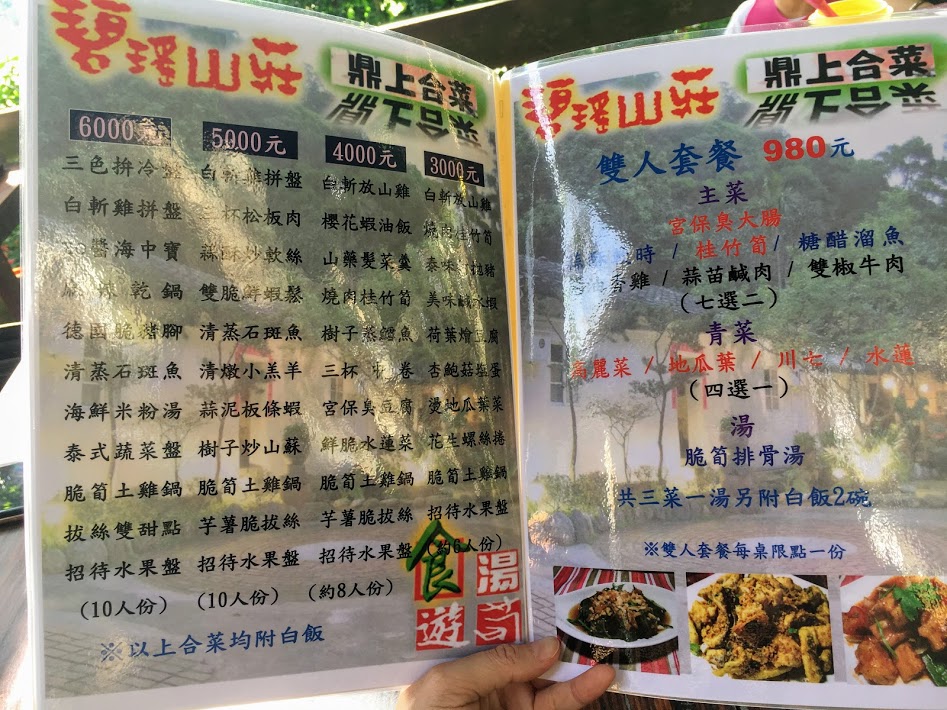 碧瑤山莊
鼎上合菜
6000元
三色拚冷盤
白斬雞拼盤
醬海中寶
麻辣乾鍋
德國脆豬腳
清蒸石斑魚
海鮮米粉湯
泰式蔬菜盤
脆筍土雞鍋
拔絲雙甜點
招待水果盤
(10人份)
5000元
白斬雞拼盤
三杯松板肉
蒜酥炒軟絲
雙脆鮮蝦鬆
清蒸石斑魚
清燉小羔羊
蒜泥板條蝦
樹子炒山蘇
脆筍土雞鍋
芋薯脆拔絲
招待水果盤
(10人份)
4000元
白斬放山雞
櫻花蝦油飯
山藥髮菜羹
燒肉桂竹筍
樹子蒸鱈魚
三杯中卷
宮保臭豆腐
鮮脆水蓮菜
脆筍土雞鍋
芋薯脆拔絲
招待水果盤
(約8人份)
3000元
白斬放山雞
燒肉桂竹筍
泰味拋豬
美味鹹水蝦
荷葉燴豆腐
杏鮑菇鹽蛋
燙地瓜葉菜
花生螺絲捲
脆筍土雞鍋
招待水果盤
(約6人份)
※以上合菜均附白飯
食
遊
湯
碧瑤山莊
鼎上合菜
雙人套餐 980元
主菜
宮保臭大腸
時 / 桂竹筍 / 糖醋溜魚
香雞 / 蒜苗鹹肉 / 雙椒牛肉
(七選二)
青菜
高麗菜 / 地瓜葉 / 川七 / 水蓮
(四選一)
湯
脆筍排骨湯
共三菜一湯另附白飯2碗
※雙人套餐每桌限點一份